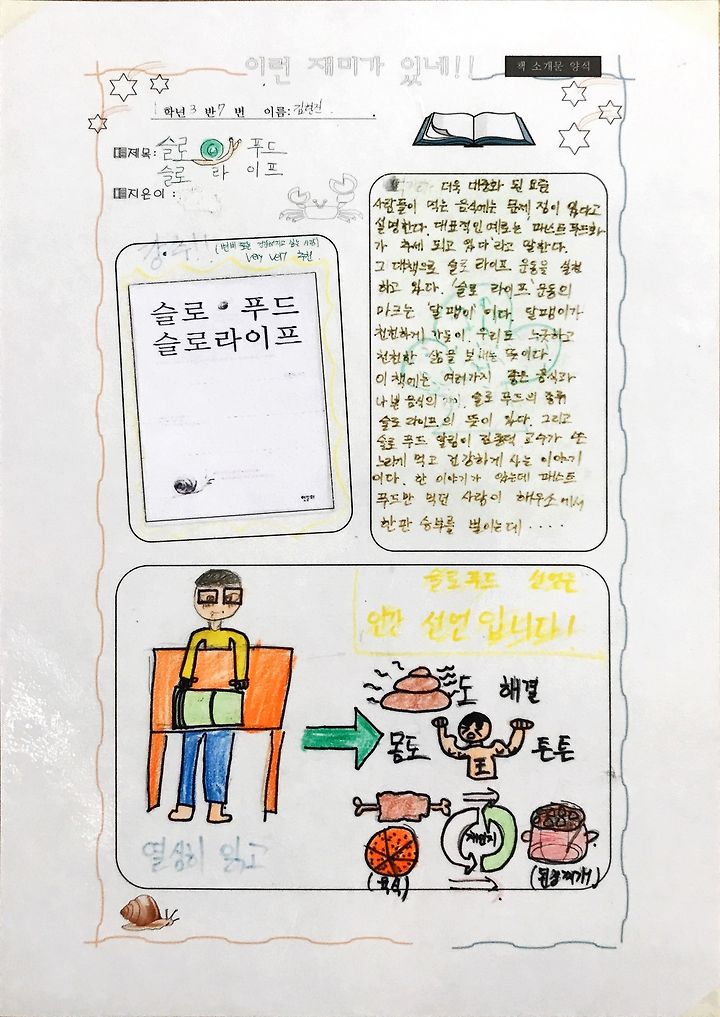 이런 재미가 있네!!
책 소개문 양식
1 학년 3 반 7 번 이름: 김현진
제목: 슬로 푸드
슬로 라 이 프
지은이 :
강.추!!
very very 추천
슬로 푸드
슬로라이프
더욱 대중화 된 요즘
사람들이 먹는 음식에는 문제점이 있다고
설명한다. 대표적인 예로는 패스트푸드화
가 추세 되고 있다'라고 말한다.
그 대책으로 슬로 라이프 운동을 실천
하고 있다. '슬로 라이프' 운동의
마크는 '달팽이'이다. 달팽이가
천천하게 만들이 우리도 느긋하고
천천한 삶을 보내는 뜻이다.
이 책에는 여러가지 좋은 음식과
나쁜 음식의 슬로 푸드의 종류
슬로 라이프의 뜻이 있다. 그리고
슬로 푸드 알림이 김종덕 교수가 쓴
느리게 먹고 건강하게 사는 이야기
이다. 한 이야기가 있는데 패스트
푸드만 먹던 사람이 해우소에서
한판 승부를 벌이는데 ....
슬로푸드 선언은
인간 선언입니다!
도 해결
몸도 튼튼
王
재번지
(육식)
(된장찌개)
열심히 읽고